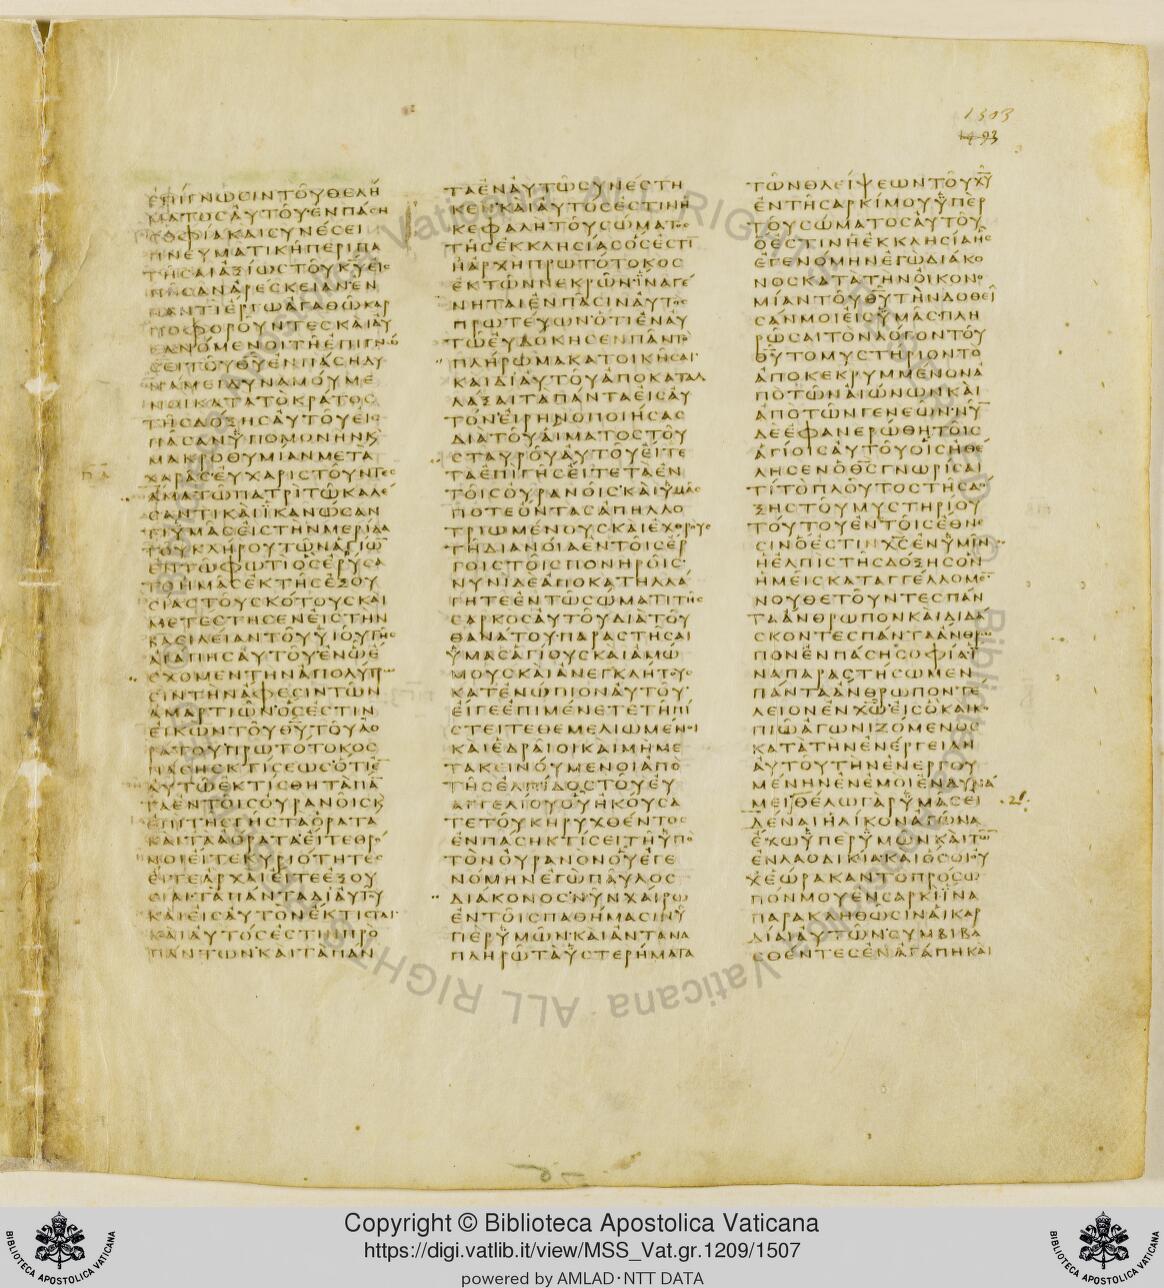 1303
1493
ΕΠΙΓΝΩϹΙΝΤΟΥΘΕΛΗ
ΜΑΤΟϹΑΥΤΟΥΕΝΠΑϹΗ
ϹΟΦΙΑΚΑΙϹΥΝΕϹΕΙ
ΠΝΕΥΜΑΤΙΚΗΠΕΡΙΠΑ
ΤΗϹΑΙΑΞΙΩϹΤΟΥΚΥΕΙϹ
ΠΑϹΑΝΑΡΕϹΚΕΙΑΝΕΝ
ΠΑΝΤΙΕΡΓΩΑΓΑΘΩΚΑΡ
ΠΟΦΟΡΟΥΝΤΕϹΚΑΙΑΥ
ΞΑΝΟΜΕΝΟΙΤΗΕΠΙΓΝΩ
ϹΕΙΤΟΥΘΥΕΝΠΑϹΗΔΥ
ΝΑΜΕΙΔΥΝΑΜΟΥΜΕ
ΝΟΙΚΑΤΑΤΟΚΡΑΤΟϹ
ΤΗϹΔΟΞΗϹΑΥΤΟΥΕΙϹ
ΠΑϹΑΝΫΠΟΜΟΝΗΝΚ
ΜΑΚΡΟΘΥΜΙΑΝΜΕΤΑ
ΧΑΡΑϹΕΥΧΑΡΙϹΤΟΥΝΤΕϹ
ΑΜΑΤΩΠΑΤΡΙΤΩΚΑΛΕ
ϹΑΝΤΙΚΑΙΪΚΑΝΩϹΑΝ
ΤΙΫΜΑϹΕΙϹΤΗΝΜΕΡΙΔΑ
ΤΟΥΚΛΗΡΟΥΤΩΝΑΓΙΩ
ΕΝΤΩΦΩΤΙΟϹΕΡΥϹΑ
ΤΟΗΜΑϹΕΚΤΗϹΕΞΟΥ
ϹΙΑϹΤΟΥϹΚΟΤΟΥϹΚΑΙ
ΜΕΤΕϹΤΗϹΕΝΕΙϹΤΗΝ
ΒΑϹΙΛΕΙΑΝΤΟΥΫΙΟΥΤΗϹ
ΑΓΑΠΗϹΑΥΤΟΥΕΝΩΕ
ϹΧΟΜΕΝΤΗΝΑΠΟΛΥΤΡΩ
ϹΙΝΤΗΝΑΦΕϹΙΝΤΩΝ
ΑΜΑΡΤΙΩΝΟϹΕϹΤΙΝ
ΕΙΚΩΝΤΟΥΘΥΤΟΥΑΟ
ΡΑΤΟΥΠΡΩΤΟΤΟΚΟϹ
ΠΑϹΗϹΚΤΙϹΕΩϹΟΤΙΕ
ΑΥΤΩΕΚΤΙϹΘΗΤΑΠΑ
ΤΑΕΝΤΟΙϹΟΥΡΑΝΟΙϹΚ
ΕΠΙΤΗϹΓΗϹΤΑΟΡΑΤΑ
ΚΑΙΤΑΑΟΡΑΤΑΕΙΤΕΘΡΟ
ΝΟΙΕΙΤΕΚΥΡΙΟΤΗΤΕϹ
ΕΙΤΕΑΡΧΑΙΕΙΤΕΕΞΟΥ
ϹΙΑΙΤΑΠΑΝΤΑΔΙΑΥΤΟΥ
ΚΑΙΕΙϹΑΥΤΟΝΕΚΤΙϹΤΑΙ
ΚΑΙΑΥΤΟϹΕϹΤΙΝΠΡΟ
ΠΑΝΤΩΝΚΑΙΤΑΠΑΝ
ΤΑΕΝΑΥΤΩϹΥΝΕϹΤΗ
ΚΕΝΚΑΙΑΥΤΟϹΕϹΤΙΝΗ
ΚΕΦΑΛΗΤΟΥϹΩΜΑΤΟϹ
ΤΗϹΕΚΚΛΗϹΙΑϹΟϹΕϹΤΙ
ΗΑΡΧΗΠΡΩΤΟΤΟΚΟϹ
ΕΚΤΩΝΝΕΚΡΩΝΪΝΑΓΕ
ΝΗΤΑΙΕΝΠΑϹΙΝΑΥΤΟϹ
ΠΡΩΤΕΥΩΝΟΤΙΕΝΑΥ
ΤΩΕΥΔΟΚΗϹΕΝΠΑΝΤΟ
ΠΛΗΡΩΜΑΚΑΤΟΙΚΗϹΑΙ
ΚΑΙΔΙΑΥΤΟΥΑΠΟΚΑΤΑΛ
ΛΑΞΑΙΤΑΠΑΝΤΑΕΙϹΑΥ
ΤΟΝΕΙΡΗΝΟΠΟΙΗϹΑϹ
ΔΙΑΤΟΥΑΙΜΑΤΟϹΤΟΥ
ϹΤΑΥΡΟΥΑΥΤΟΥΕΙΤΕ
ΤΑΕΠΙΓΗϹΕΙΤΕΤΑΕΝ
ΤΟΙϹΟΥΡΑΝΟΙϹΚΑΙΫΜΑϹ
ΠΟΤΕΟΝΤΑϹΑΠΗΛΛΟ
ΤΡΙΩΜΕΝΟΥϹΚΑΙΕΧΘΡΟΥϹ
ΤΗΔΙΑΝΟΙΑΕΝΤΟΙϹΕΡ
ΓΟΙϹΤΟΙϹΠΟΝΗΡΟΙϹ
ΝΥΝΙΔΕΑΠΟΚΑΤΗΛΛΑ
ΓΗΤΕΕΝΤΩϹΩΜΑΤΙΤΗϹ
ϹΑΡΚΟϹΑΥΤΟΥΔΙΑΤΟΥ
ΘΑΝΑΤΟΥΠΑΡΑϹΤΗϹΑΙ
ΫΜΑϹΑΓΙΟΥϹΚΑΙΑΜΩ
ΜΟΥϹΚΑΙΑΝΕΓΚΛΗΤΟΥϹ
ΚΑΤΕΝΩΠΙΟΝΑΥΤΟΥ
ΕΙΓΕΕΠΙΜΕΝΕΤΕΤΗΠΙ
ϹΤΕΙΤΕΘΕΜΕΛΙΩΜΕΝΟΙ
ΚΑΙΕΔΡΑΙΟΙΚΑΙΜΗΜΕ
ΤΑΚΕΙΝΟΥΜΕΝΟΙΑΠΟ
ΤΗϹΕΛΠΙΔΟϹΤΟΥΕΥ
ΑΓΓΕΛΙΟΥΟΥΗΚΟΥϹΑ
ΤΕΤΟΥΚΗΡΥΧΘΕΝΤΟϹ
ΕΝΠΑϹΗΚΤΙϹΕΙΤΗΫΠΟ
ΤΟΝΟΥΡΑΝΟΝΟΥΕΓΕ
ΝΟΜΗΝΕΓΩΠΑΥΛΟϹ
ΔΙΑΚΟΝΟϹΝΥΝΧΑΙΡΩ
ΕΝΤΟΙϹΠΑΘΗΜΑϹΙΝΫ
ΠΕΡΫΜΩΝΚΑΙΑΝΤΑΝΑ
ΠΛΗΡΩΤΑΫϹΤΕΡΗΜΑΤΑ
ΤΩΝΘΛΕΙΨΕΩΝΤΟΥΧΥ
ΕΝΤΗϹΑΡΚΙΜΟΥΫΠΕΡ
ΤΟΥϹΩΜΑΤΟϹΑΥΤΟΥ
ΟΕϹΤΙΝΗΕΚΚΛΗϹΙΑΗϹ
ΕΓΕΝΟΜΗΝΕΓΩΔΙΑΚΟ
ΝΟϹΚΑΤΑΤΗΝΟΙΚΟΝΟ
ΜΙΑΝΤΟΥΘΥΤΗΝΔΟΘΕΙ
ϹΑΝΜΟΙΕΙϹΫΜΑϹΠΛΗ
ΡΩϹΑΙΤΟΝΛΟΓΟΝΤΟΥ
ΘΥΤΟΜΥϹΤΗΡΙΟΝΤΟ
ΑΠΟΚΕΚΡΥΜΜΕΝΟΝΑ
ΠΟΤΩΝΑΙΩΝΩΝΚΑΙ
ΑΠΟΤΩΝΓΕΝΕΩΝΝΥ
ΔΕΕΦΑΝΕΡΩΘΗΤΟΙϹ
ΑΓΙΟΙϹΑΥΤΟΥΟΙϹΗΘΕ
ΛΗϹΕΝΟΘϹΓΝΩΡΙϹΑΙ
ΤΙΤΟΠΛΟΥΤΟϹΤΗϹΔΟ
ΞΗϹΤΟΥΜΥϹΤΗΡΙΟΥ
ΤΟΥΤΟΥΕΝΤΟΙϹΕΘΝΕ
ϹΙΝΟΕϹΤΙΝΧϹΕΝΥΜΙΝ
ΗΕΛΠΙϹΤΗϹΔΟΞΗϹΟΝ
ΗΜΕΙϹΚΑΤΑΓΓΕΛΛΟΜΕ
ΝΟΥΘΕΤΟΥΝΤΕϹΠΑΝ
ΤΑΑΝΘΡΩΠΟΝΚΑΙΔΙΔΑ
ϹΚΟΝΤΕϹΠΑΝΤΑΑΝΘΡΩ
ΠΟΝΕΝΠΑϹΗϹΟΦΙΑΪ
ΝΑΠΑΡΑϹΤΗϹΩΜΕΝ
ΠΑΝΤΑΑΝΘΡΩΠΟΝΤΕ
ΛΕΙΟΝΕΝΧΩΕΙϹΟΚΑΙΚΟ
ΠΙΩΑΓΩΝΙΖΟΜΕΝΟϹ
ΚΑΤΑΤΗΝΕΝΕΡΓΕΙΑΝ
ΑΥΤΟΥΤΗΝΕΝΕΡΓΟΥ
ΜΕΝΗΝΕΝΕΜΟΙΕΝΔΥΝΑ
ΜΕΙΘΕΛΩΓΑΡΫΜΑϹΕΙ
ΔΕΝΑΙΗΛΙΚΟΝΑΓΩΝΑ
ΕΧΩΫΠΕΡΫΜΩΝΚΑΙΤΩ
ΕΝΛΑΟΔΙΚΙΑΚΑΙΟϹΟΙΟΥ
ΧΕΩΡΑΚΑΝΤΟΠΡΟϹΩ
ΠΟΝΜΟΥΕΝϹΑΡΚΙΪΝΑ
ΠΑΡΑΚΛΗΘΩϹΙΝΑΙΚΑΡ
ΔΙΑΙΑΥΤΩΝϹΥΜΒΙΒΑ
ϹΘΕΝΤΕϹΕΝΑΓΑΠΗΚΑΙ
Copyright © Biblioteca Apostolica Vaticana
https://digi.vatlib.it/view/MSS_Vat.gr.1209/1507
powered by AMLAD·NTT DATA
BIBLIOTECA APOSTOLICA VATICANA
BIBLIOTECA APOSTOLICA VATICANA